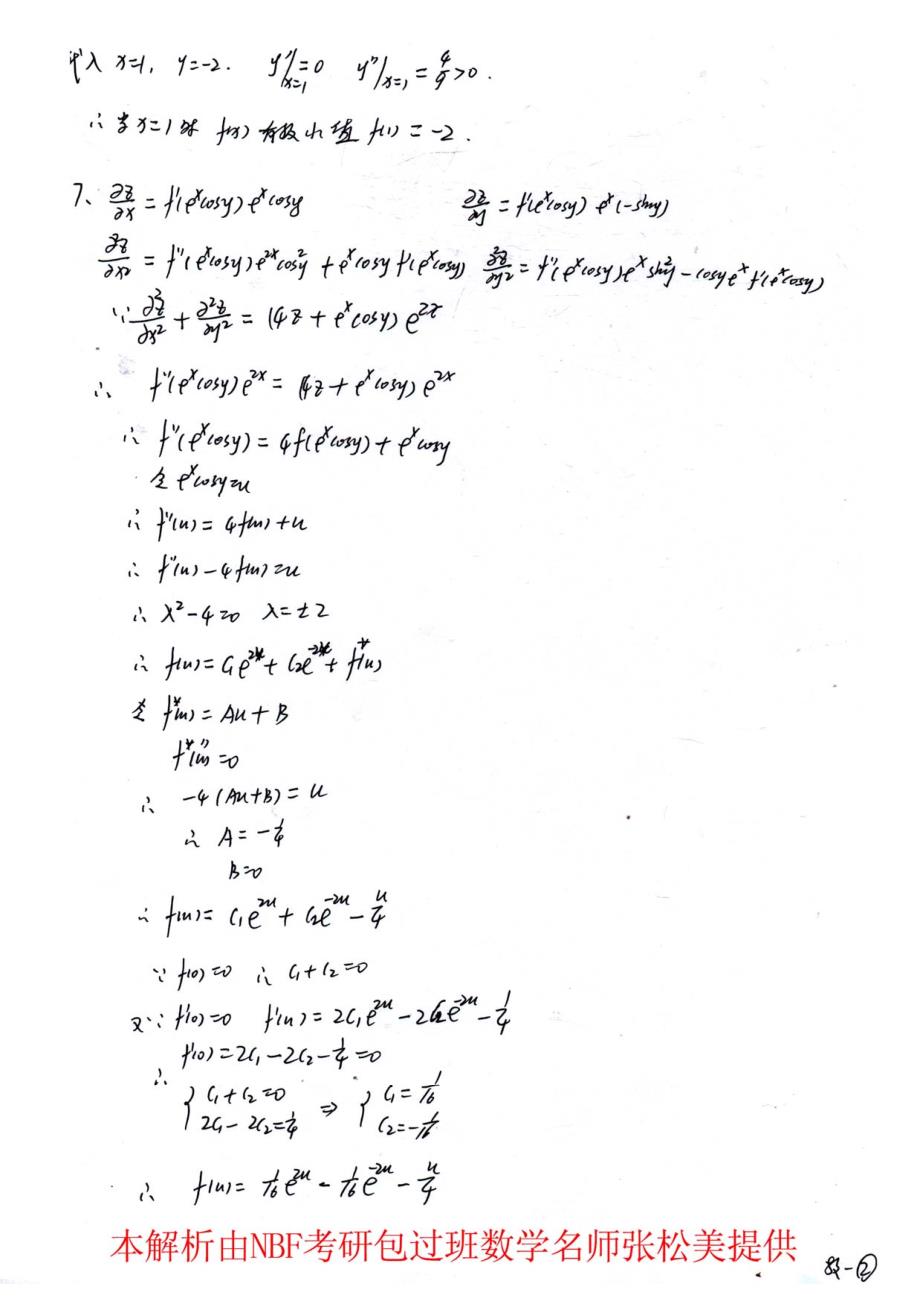 代入 x=1, y=-2. y'|x=1=0 y''|x=1=4/9>0.
∴当x=1时 f(x)有极小值 f(1)=-2.
7、∂z/∂x=f'(e^x cosy)e^x cosy ∂z/∂y=f'(e^x cosy)e^x(-siny)
∂²z/∂x²=f''(e^x cosy)e^2x cos²y+e^x cosy f'(e^x cosy) ∂²z/∂y²=f''(e^x cosy)e^x sin²y-cosy e^x f'(e^x cosy)
∵∂²z/∂x²+∂²z/∂y²=(4z+e^x cosy)e^2x
∴ f''(e^x cosy)e^2x=(4z+e^x cosy)e^2x
∴ f''(e^x cosy)=4f(e^x cosy)+e^x cosy
令 e^x cosy=u
∴ f''(u)=4f(u)+u
∴ f''(u)-4f(u)=u
∴ λ²-4=0 λ=±2
∴ f(u)=C₁e^2u+C₂e^-2u+f*(u)
令 f*(u)=Au+B
f*''(u)=0
∴ -4(Au+B)=u
∴ A=-1/4
B=0
∴ f(u)=C₁e^2u+C₂e^-2u-u/4
∵ f(0)=0 ∴ C₁+C₂=0
又∵ f'(0)=0 f'(u)=2C₁e^2u-2C₂e^-2u-1/4
f'(0)=2C₁-2C₂-1/4=0
∴ { C₁+C₂=0 2C₁-2C₂=1/4 ⇒ { C₁=1/16 C₂=-1/16
∴ f(u)=1/16e^2u-1/16e^-2u-u/4
本解析由NBF考研包过班数学名师张松美提供
数一②